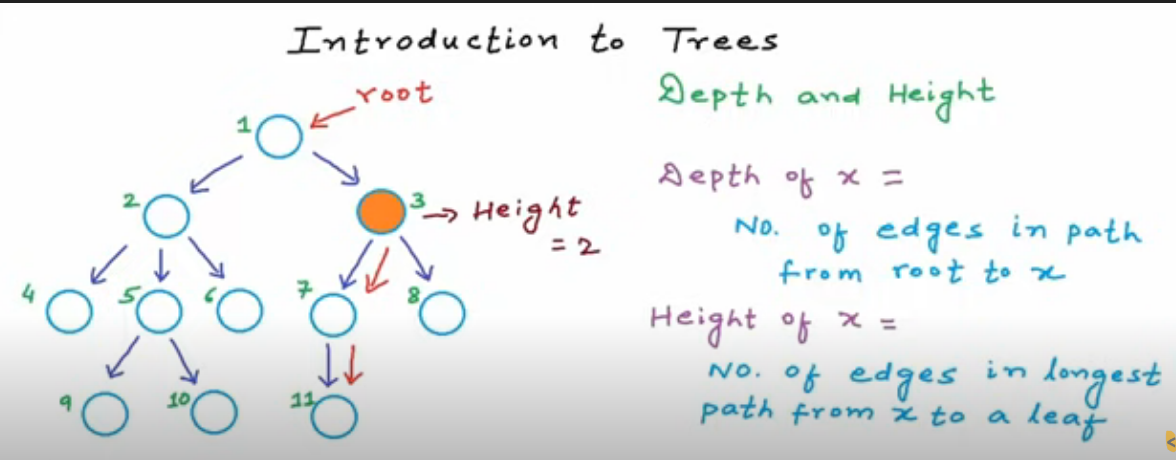 Introduction to Trees
root
1
2
3 → Height
= 2
4
5
6
7
8
9
10
11
Depth and Height
Depth of x =
No. of edges in path
from root to x
Height of x =
No. of edges in longest
path from x to a leaf
<